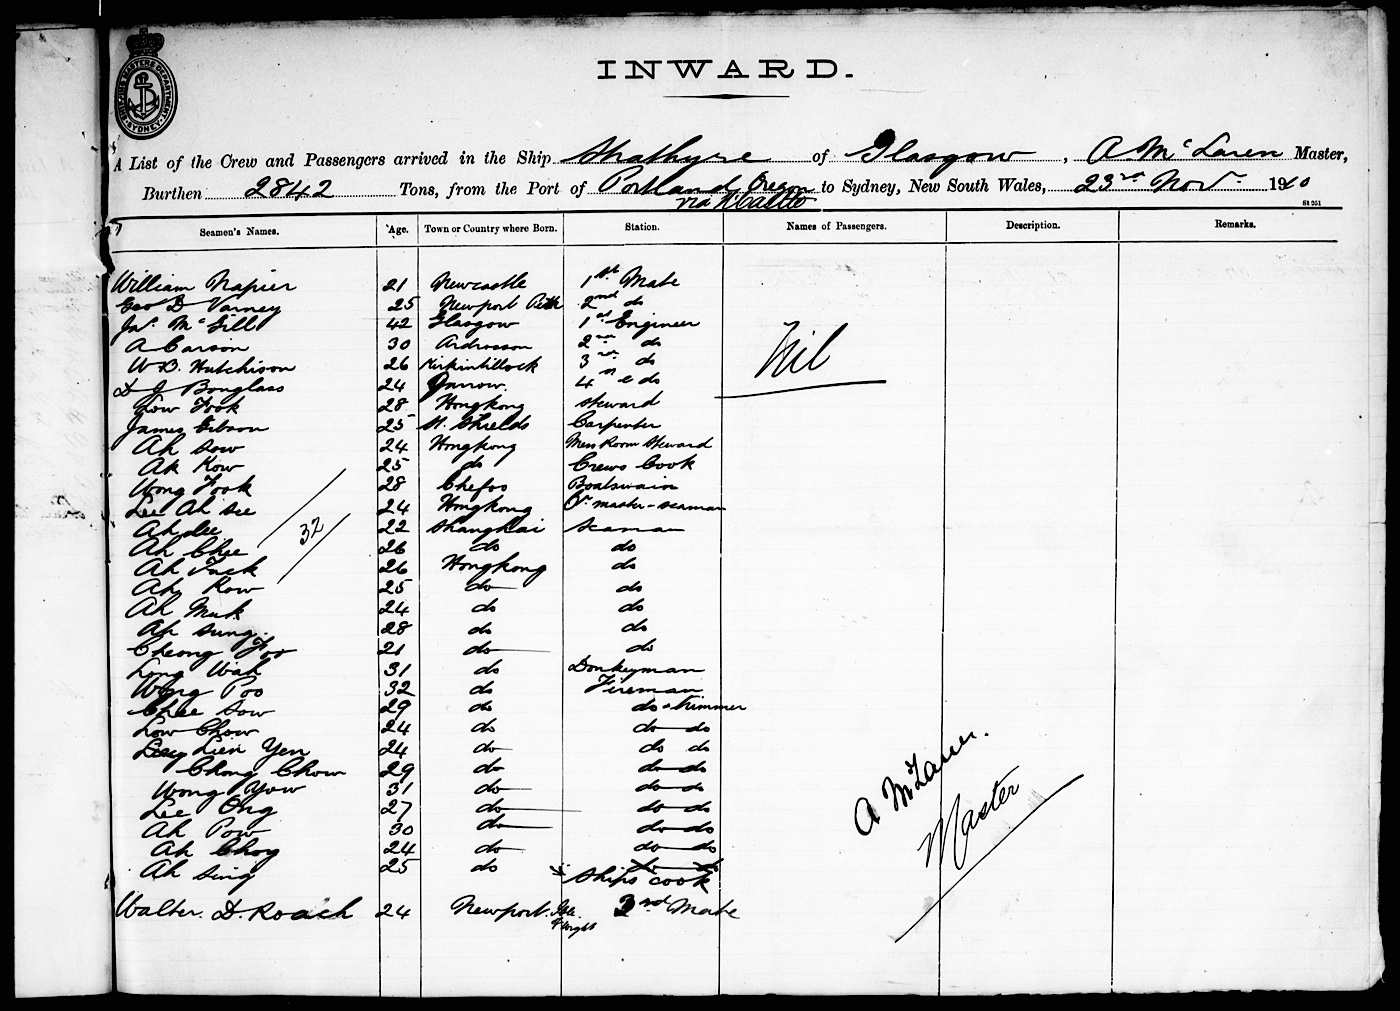 SHIPPING MASTERS DEPARTMENT SYDNEY
INWARD.
A List of the Crew and Passengers arrived in the Ship Strathyre of Glasgow, A. McLaren Master,
Burthen 2842 Tons, from the Port of Portland Oregon to Sydney, New South Wales, 23rd Nov. 1910
via N'Castle
St 251
Seamen's Names. Age. Town or Country where Born. Station. Names of Passengers. Description. Remarks.
William Napier 21 Newcastle 1st Mate
Geo D Varney 25 Newport 2nd do
Jas. McGill 42 Glasgow 1st Engineer
A Carson 30 Ardrossan 2nd do
W B. Hutchison 26 Kirkintillock 3rd do
D J Bonglass 24 Jarrow. 4th do
Low Fook 28 Hongkong Steward
James Gibson 25 N. Shields Carpenter
Ah Sow 24 Hongkong Mess Room Steward
Ah Kow 25 do Crews Cook
Wong Fook 28 Chefoo Boatswain
Lee Ah See 24 Hongkong Qr master-seaman
Ah Lee 22 Shanghai Seaman
Ah Chee 26 do do
Ah Tack 26 Hongkong do
Ah Kow 25 do do
Ah Muk 24 do do
Ah Sung. 28 do do
Cheong Foo 21 do do
Long Wah 31 do Donkeyman
Wong Poo 32 do Fireman
Chee Sow 29 do do & trimmer
Low Chow 24 do do do
Lien Yen 24 do do do
Chong Chow 29 do do do
Wong Yow 31 do do do
Lee Ong 27 do do do
Ah Pow 30 do do do
Ah Choy 24 do do do
Ah Sing 25 do do do
Ships cook
Walter. D. Roach 24 Newport. Isle of Wight 3rd Mate
32
Nil
A McLaren.
Master